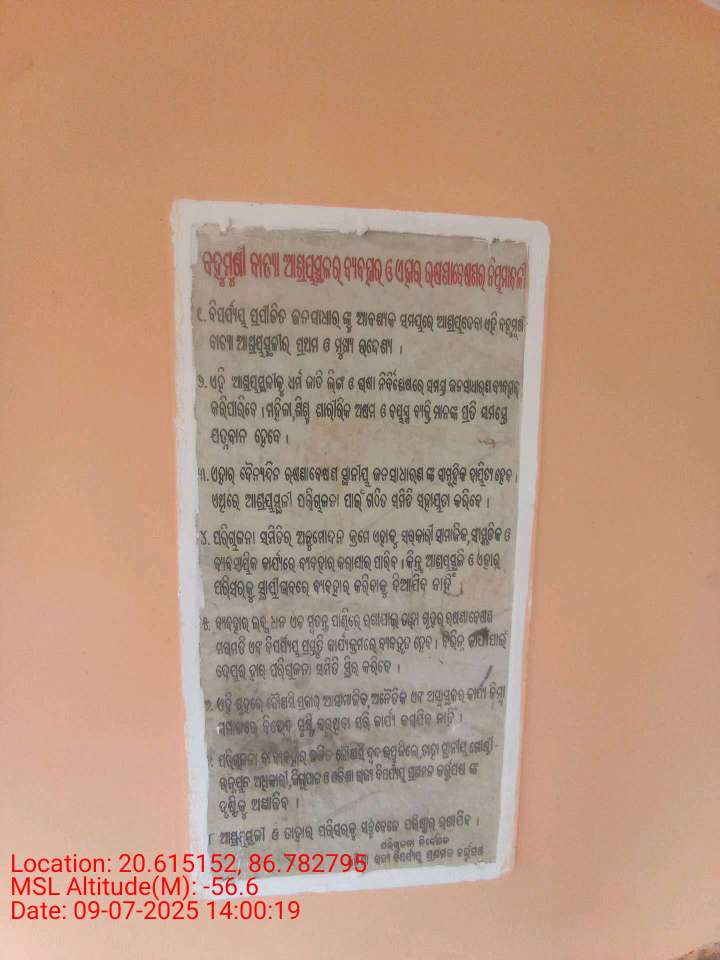 ବହୁମୁଖୀ ବାତ୍ୟା ଆଶ୍ରୟସ୍ଥଳର ବ୍ୟବହାର ଓ ଏହାର ରକ୍ଷଣାବେକ୍ଷଣର ନିୟମାବଳୀ
୧. ବିପର୍ଯ୍ୟୟ ପ୍ରପୀଡିତ ଜନସାଧାରଣଙ୍କୁ ଆବଶ୍ୟକ ସମୟରେ ଆଶ୍ରୟଦେବା ଏହି ବହୁମୁଖୀ
ବାତ୍ୟା ଆଶ୍ରୟସ୍ଥଳୀର ପ୍ରଥମ ଓ ମୁଖ୍ୟ ଉଦ୍ଦେଶ୍ୟ ।
୨. ଏହି ଆଶ୍ରୟସ୍ଥଳୀକୁ ଧର୍ମ ଜାତି ଲିଙ୍ଗ ଓ ଭାଷା ନିର୍ବିଶେଷରେ ସମସ୍ତ ଜନସାଧାରଣ ବ୍ୟବହାର
କରିପାରିବେ । ମହିଳା, ଶିଶୁ ଶାରୀରିକ ଅକ୍ଷମ ଓ ବୟସ୍କ ବ୍ୟକ୍ତି ମାନଙ୍କ ପ୍ରତି ସମସ୍ତେ
ଯତ୍ନବାନ ହେବେ ।
୩. ଏହାର ଦୈନ୍ୟନ୍ଦିନ ରକ୍ଷଣାବେକ୍ଷଣ ସ୍ଥାନୀୟ ଜନସାଧାରଣ ଙ୍କ ସାମୁହିକ ଦାୟିତ୍ୱ ହେବ ।
ଏଥିରେ ଆଶ୍ରୟସ୍ଥଳୀ ପରିଚାଳନା ପାଇଁ ଗଠିତ ସମିତି ସହାଯ୍ୟତା କରିବେ ।
୪. ପରିଚାଳନା ସମିତିର ଅନୁମୋଦନ କ୍ରମେ ଏହାକୁ ସରକାରୀ ସାମାଜିକ, ସାଂସ୍କୃତିକ ଓ
ବ୍ୟବସାୟିକ କାର୍ଯ୍ୟରେ ବ୍ୟବହାର କରାଯାଇ ପାରିବ । କିନ୍ତୁ ଆଶ୍ରୟସ୍ଥଳୀ ଓ ଏହାର
ପରିସରକୁ ସ୍ଥାୟୀ ଭାବରେ ବ୍ୟବହାର କରିବାକୁ ଦିଆଯିବ ନାହିଁ ।
୫. ବ୍ୟବହାର ଲବ୍ଧ ଧନ ଏକ ସ୍ୱତନ୍ତ୍ର ପାଣ୍ଠିରେ ରଖାଯାଇ ଉକ୍ତ ଗୃହର ରକ୍ଷଣାବେକ୍ଷଣ
ମରାମତି ଏବଂ ବିପର୍ଯ୍ୟୟ ପ୍ରସ୍ତୁତି କାର୍ଯ୍ୟକ୍ରମରେ ବ୍ୟବହୃତ ହେବ । ବିଭିନ୍ନ କାର୍ଯ୍ୟପାଇଁ
ଦେୟର ହାର ପରିଚାଳନା ସମିତି ସ୍ଥିର କରିବେ ।
ଏହି ଗୃହରେ କୌଣସି ପ୍ରକାର ଅସାମାଜିକ, ଅନୈତିକ ଏବଂ ଅସ୍ୱାସ୍ଥ୍ୟକର କାର୍ଯ୍ୟ କିମ୍ବା
ସମାଜରେ ବିଭେଦ ସୃଷ୍ଟି କରୁଥିବା ପରି କାର୍ଯ୍ୟ କରାଯିବ ନାହିଁ ।
ପରିଚାଳନା ବା ବ୍ୟବହାର ଜନିତ କୌଣସି ଦ୍ୱନ୍ଦ ଉପୁଜିଲେ, ତାହା ସ୍ଥାନୀୟ ଗୋଷ୍ଠୀ-
ଉନ୍ନୟନ ଅଧିକାରୀ, ଜିଲ୍ଲାପାଳ ଓ ଓଡିଶା ରାଜ୍ୟ ବିପର୍ଯ୍ୟୟ ପ୍ରଶମନ କର୍ତ୍ତୃପକ୍ଷ ଙ୍କ
ଦୃଷ୍ଟିକୁ ଅଣାଯିବ ।
୮ ଆଶ୍ରୟସ୍ଥଳୀ ଓ ତାହାର ପରିସରକୁ ସବୁବେଳେ ପରିଷ୍କାର ରଖାଯିବ ।
ପରିଚାଳନା ନିର୍ଦ୍ଦେଶକ
ରାଜ୍ୟ ବିପର୍ଯ୍ୟୟ ପ୍ରଶମନ କର୍ତ୍ତୃପକ୍ଷ
Location: 20.615152, 86.782795
MSL Altitude(M): -56.6
Date: 09-07-2025 14:00:19